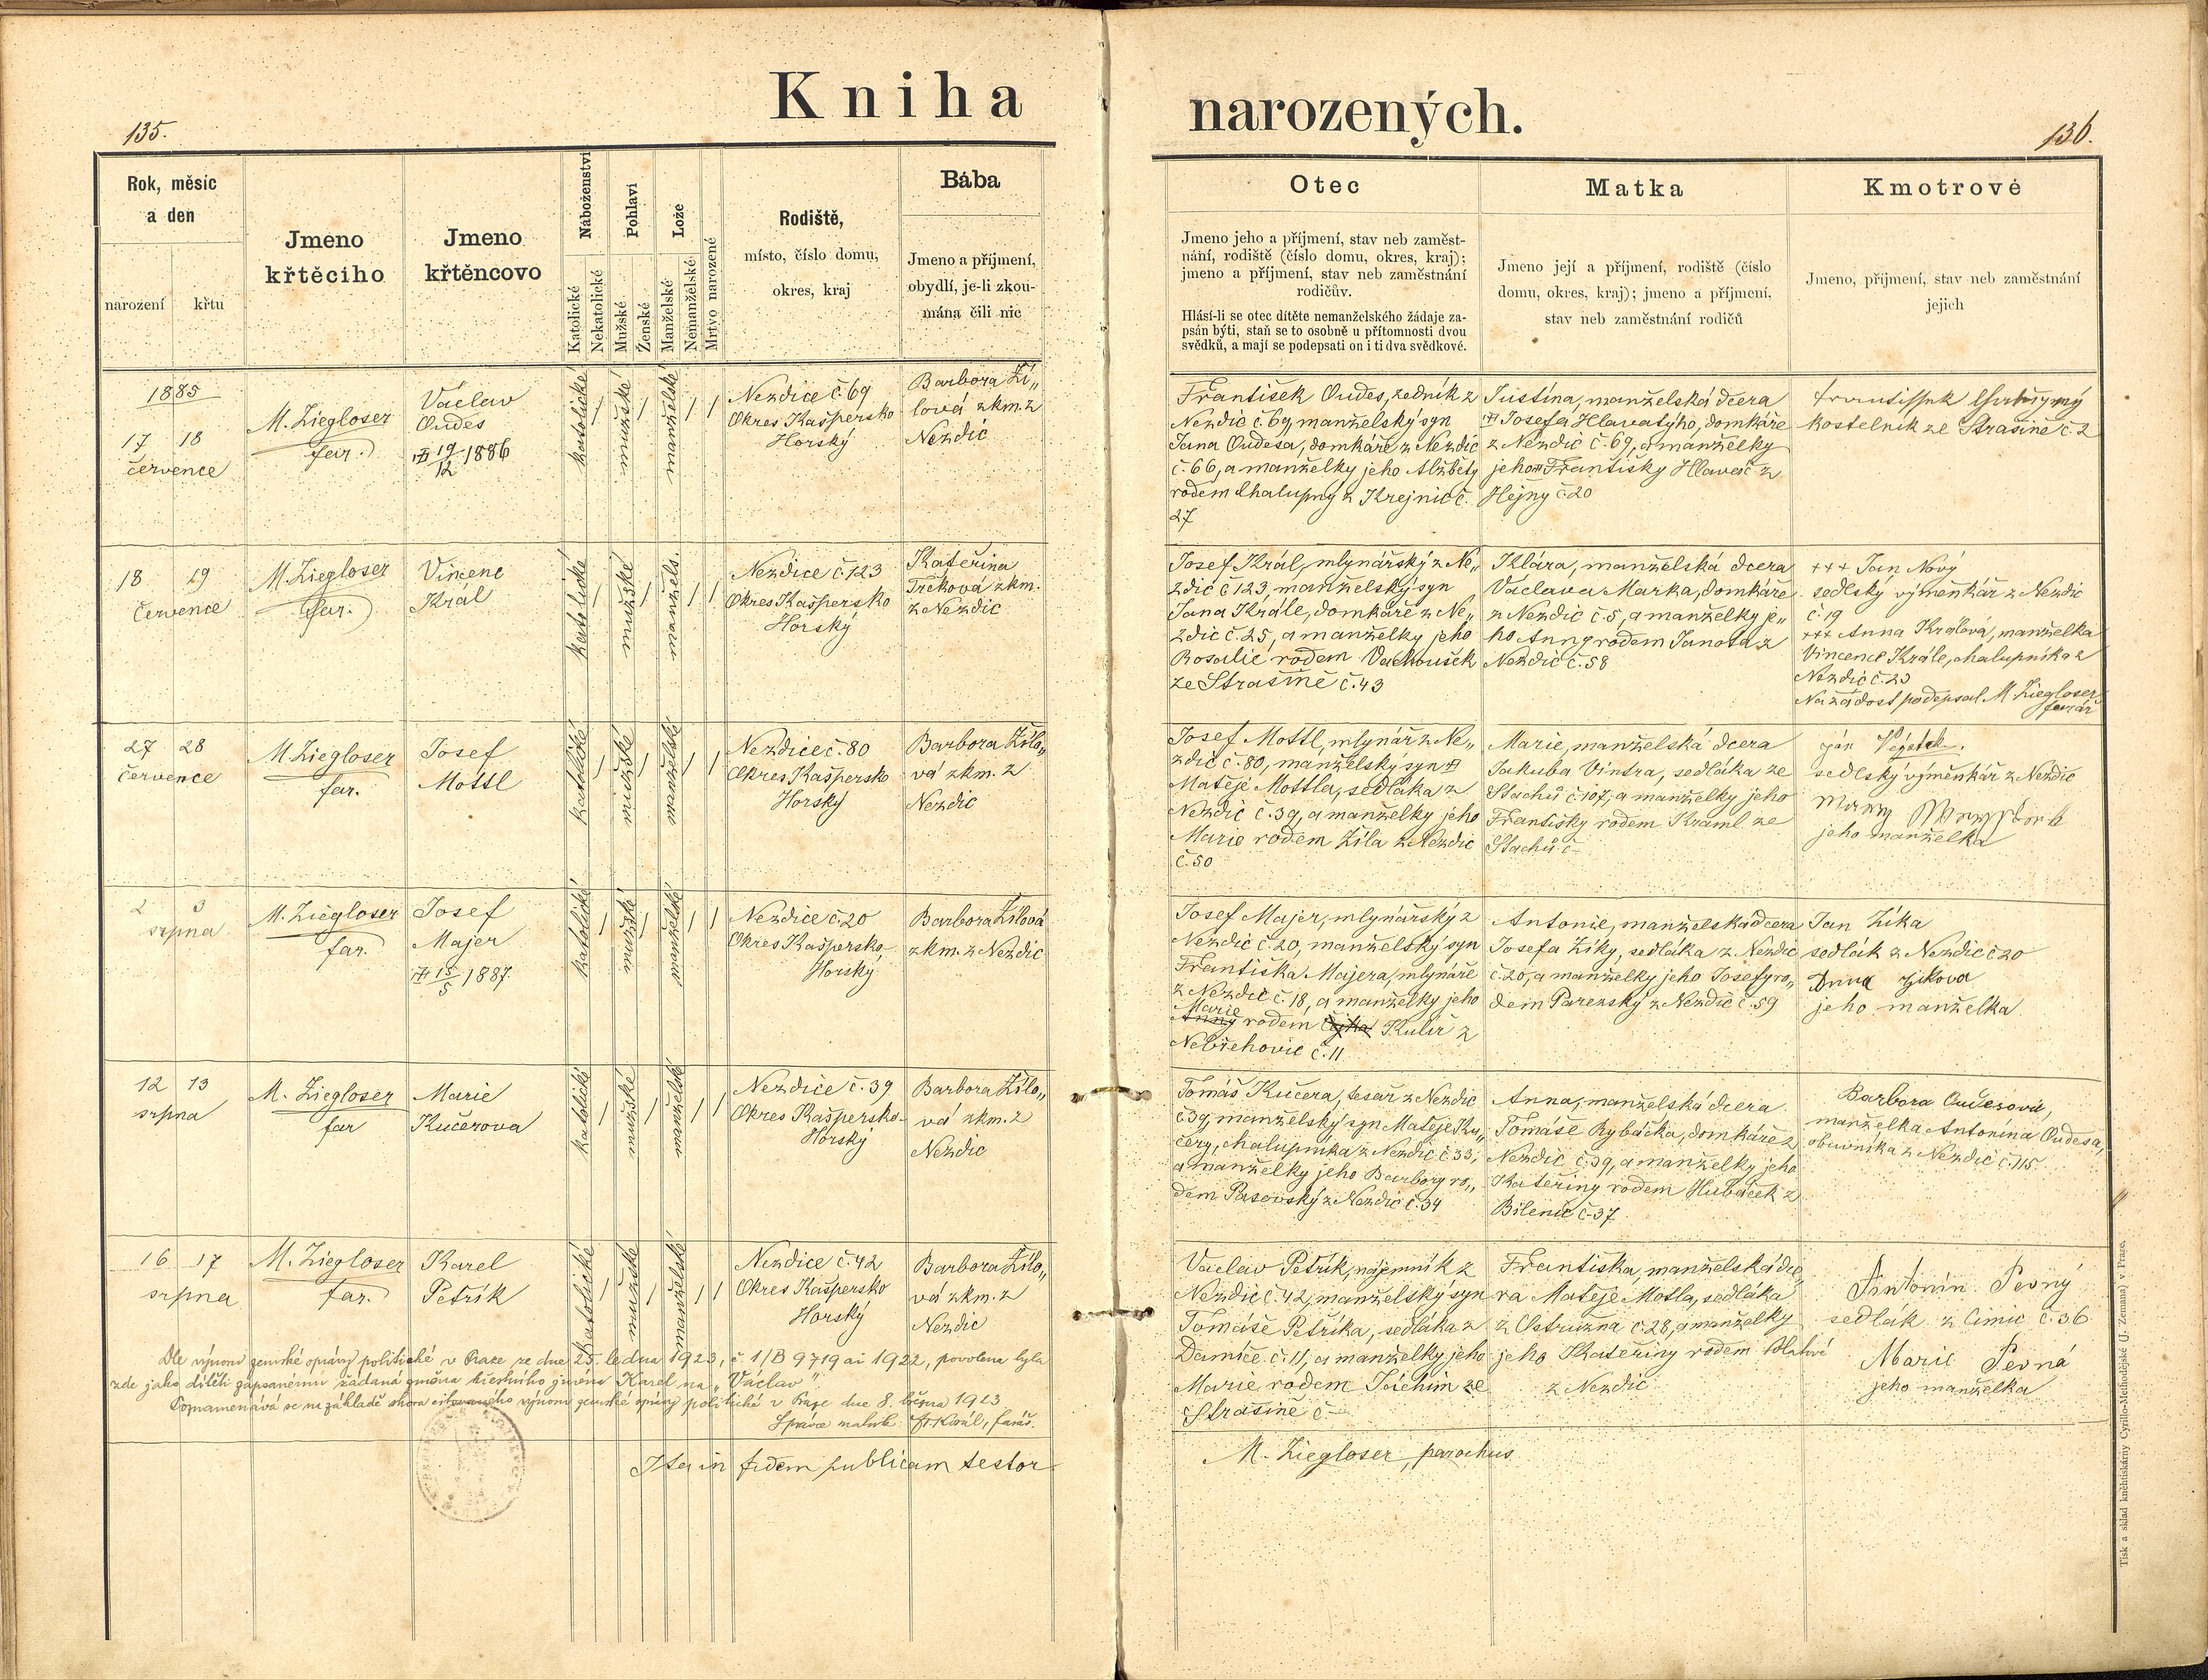 Kniha
135.
Rok, měsíc
a den
narození
křtu
Jmeno
křtěcího
Jmeno
křtěncovo
Náboženství
Katolické
Nekatolické
Pohlaví
Mužské
Ženské
Lože
Manželské
Nemanželské
Mrtvo narozené
Rodiště,
místo, číslo domu,
okres, kraj
Bába
Jmeno a příjmení,
obydlí, je-li zkou-
mána čili nic
1885
17 18
července
M. Ziegloser
far.
Václav
Oudes
19/12 1886
katolické
mužské
manželské
Nezdice č 69
Okres Kašpersko
Horský
Barbora Ží„
lová zkm. z
Nezdic
18 19
července
M. Ziegloser
far.
Vincenc
Král
katolické
mužské
manžels.
Nezdice č. 123
Okres Kašpersko
Horský
Kateřina
Trčková zkm.
z Nezdic
27 28
července
M. Ziegloser
far.
Josef
Mottl
katolické
mužské
manželské
Nezdice č. 80
Okres Kašpersko
Horský
Barbora Žílo„
vá zkm. z
Nezdic
2 3
srpna
M. Ziegloser
far.
Josef
Majer
15/5 1887
katolické
mužské
manželské
Nezdice č 20
Okres Kašpersko
Horský
Barbora Žílová
zkm. z Nezdic
12 13
srpna
M. Ziegloser
far
Marie
Kučerova
katolické
mužské
manželské
Nezdice č. 39
Okres Kašpersko-
Horský
Barbora Žílo„
vá zkm. z
Nezdic
16 17
srpna
M. Ziegloser
far.
Karel
Petřík
katolické
mužské
manželské
Nezdice č. 42
Okres Kašpersko
Horský
Barbora Žílo„
vá zkm. z
Nezdic
Dle výnosu zemské správy politické v Praze ze dne 25. ledna 1923, č. 1/B 9719 ai 1922, povolena byla
zde jako dítěti zapsanému žádaná změna křestního jména Karel na „Václav“.
Poznamenává se na základě shora citovaného výnosu zemské správy politické v Praze dne 8. března 1923
Správce matrik: Fr. Král, farář.
Ita in fidem publicam testor
narozených.
136.
Otec
Jmeno jeho a příjmení, stav neb zaměst-
nání, rodiště (číslo domu, okres, kraj);
jmeno a příjmení, stav neb zaměstnání
rodičův.
Hlásí-li se otec dítěte nemanželského žádaje za-
psán býti, staň se to osobně u přítomnosti dvou
svědků, a mají se podepsati on i ti dva svědkové.
Matka
Jmeno její a příjmení, rodiště (číslo
domu, okres, kraj); jmeno a příjmení,
stav neb zaměstnání rodičů
Kmotrové
Jmeno, příjmení, stav neb zaměstnání
jejich
František Oudes, zedník z
Nezdic č. 69, manželský syn
Jana Oudesa, domkáře z Nezdic
č. 66, a manželky jeho Alžběty
rodem Chalupny z Krejnic č.
27
Justina, manželská dcera
Josefa Hlavatýho, domkáře
z Nezdic č. 69, a manželky
jeho Františky Hlaveš z
Hejny č 20
kostelník ze Strašíně č. 2
Josef Král, mlynářský z Ne„
zdic č 123, manželský syn
Jana Krále, domkáře z Ne„
zdic č. 25, a manželky jeho
Rosalie rodem Vachoušek
ze Strašíně č. 43
Klára, manželská dcera
Václava Marka, domkáře
z Nezdic č. 5, a manželky je„
ho Anny rodem Janota z
Nezdic č. 58
+++ Jan Nový
sedlský výměnkář z Nezdic
č. 19
+++ Anna Králová, manželka
Vincence Krále, chalupníka z
Nezdic č. 23
Na žádost podepsal M. Ziegloser
farář
Josef Mottl, mlynář z Ne„
zdic č. 80, manželský syn
Matěje Mottla, sedláka z
Nezdic č. 39, a manželky jeho
Marie rodem Žíla z Nezdic
č. 50
Marie, manželská dcera
Jakuba Vintra, sedláka ze
Stachů č. 107, a manželky jeho
Františky rodem Kraml ze
Stachů č –
sedlský výměnkář z Nezdic
jeho manželka
Josef Majer, mlynářský z
Nezdic č. 20, manželský syn
Františka Majera, mlynáře
z Nezdic č. 18, a manželky jeho
Marie
Anny rodem Kulíř z
Nebřehovic č. 11
Antonie, manželská dcera
Josefa Zíky, sedláka z Nezdic
č. 20, a manželky jeho Josefy ro„
dem Parezský z Nezdic č. 59
Jan Zíka
sedlák z Nezdic č 20
Anna Zikova
jeho manželka
Tomáš Kučera, tesař z Nezdic
č 39, manželský syn Matěje Ku„
čery, chalupníka z Nezdic č 33,
a manželky jeho Barbory ro„
dem Pasovský z Nezdic č. 34
Anna, manželská dcera
Tomáše Rybáčka, domkáře z
Nezdic č. 39, a manželky jeho
Kateřiny rodem Hubáček z
Bilenic č. 37
Barbora Oudesová,
manželka Antonína Oudesa,
obuvníka z Nezdic č. 115.
Václav Petřík, nájemník z
Nezdic č. 42, manželský syn
Tomáše Petříka, sedláka z
Damíče č. 11, a manželky jeho
Marie rodem Jáchim ze
Strašíně č –
Františka, manželská dce„
ra Matěje Motla, sedláka
z Ostružna č. 28, a manželky
jeho Kateřiny rodem
z Nezdic
Antonín Pevný
sedlák z Čimic č. 36
Marie Pevná
jeho manželka
M. Ziegloser, parochus
Tisk a sklad kněhtiskárny Cyrillo-Methodějské (J. Zeman) v Praze.